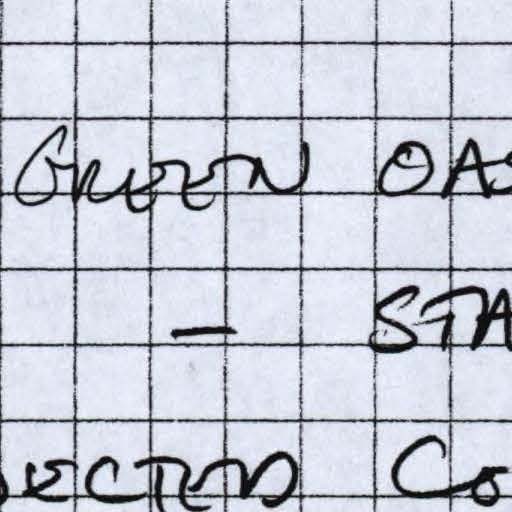 GREEN OAS
- STA
JECTED Co